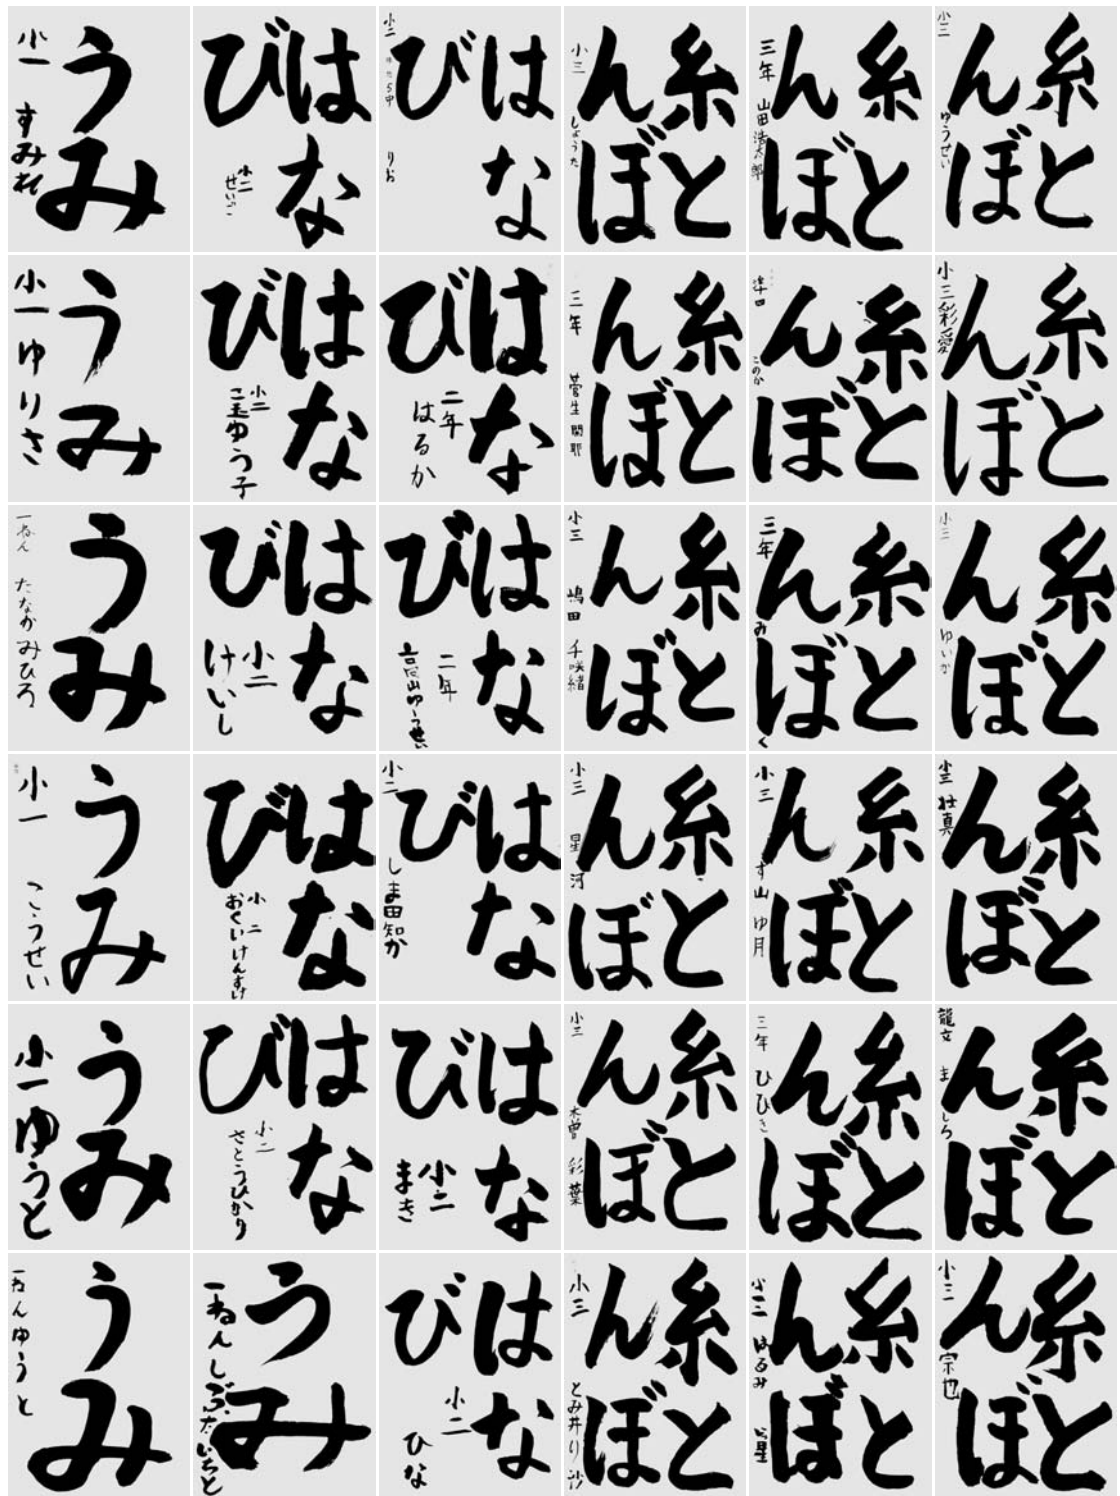 うみ
小一 すみれ
はな
び
小二
せいご
はな
び
小二
りお
糸と
んぼ
小三 しょうた
糸と
んぼ
三年 山田浩太郎
糸と
んぼ
小三 ゆうせい
うみ
小一 ゆりさ
はな
び
小二
ゆう子
はな
び
二年
はるか
糸と
んぼ
三年 菅生
糸と
んぼ
このか
糸と
んぼ
小三 彩愛
うみ
一ねん たなかみひろ
はな
び
小二
けいし
はな
び
二年
高山ゆうせい
糸と
んぼ
小三 嶋田 千咲緒
糸と
んぼ
三年 みく
糸と
んぼ
小三 ゆいか
うみ
小一 こうせい
はな
び
小二
おくいけんすけ
はな
び
小二 しま田知か
糸と
んぼ
小三 星河
糸と
んぼ
小三 す山ゆ月
糸と
んぼ
小三 壮真
うみ
小一 ゆうと
はな
び
小二
さとうひかり
はな
び
小二
まき
糸と
んぼ
小三 木曽 彩葉
糸と
んぼ
三年 ひびき
糸と
んぼ
龍文 ましろ
うみ
一ねん ゆうと
うみ
一ねん しぶたいちと
はな
び
小二
ひな
糸と
んぼ
小三 とみ井り沙
糸と
んぼ
小三 はるみ
糸と
んぼ
小三 宗也